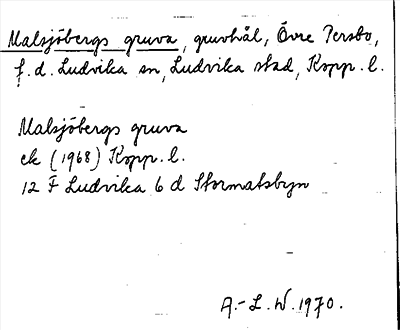 Malsjöbergs gruva, gruvhål, Övre Persbo,
f.d. Ludvika sn, Ludvika stad, Kopp. l.
Malsjöbergs gruva
ek (1968) Kopp. l.
12 F Ludvika 6 d Stormatsbyn
A.-L. W. 1970.